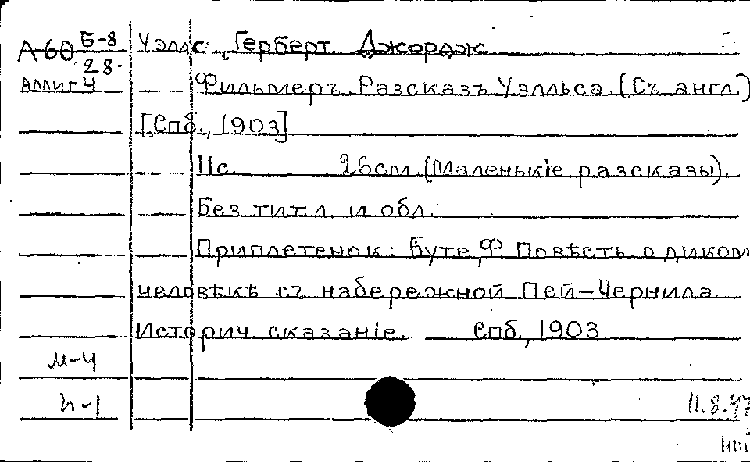 А-60 Б-8 Уэллс, Герберт Джордж
28.
аллиг 4 Фильмеръ. Разсказъ Уэлльса. (Съ англ.)
[Спб., 1903]
11с. 26см. (Маленькіе разсказы).
Без тит.л. и обл.
Приплетенок: Буте, Ф. Повѣсть о диком
человѣкѣ съ набережной Пей-Чернила
Историч. сказаніе. Спб., 1903
м-4
11.8.47